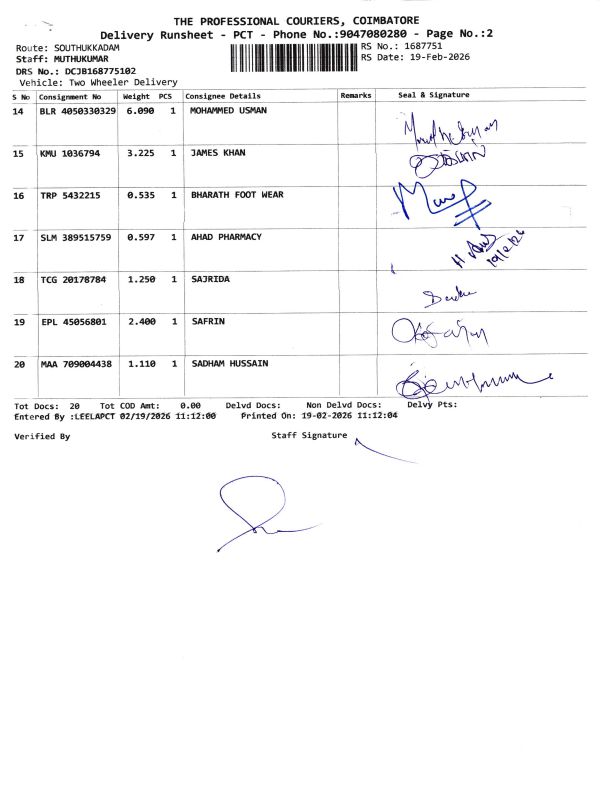 THE PROFESSIONAL COURIERS, COIMBATORE
Delivery Runsheet - PCT - Phone No.:9047080280 - Page No.:2
Route: SOUTHUKKADAM RS No.: 1687751
Staff: MUTHUKUMAR RS Date: 19-Feb-2026
DRS No.: DCJB168775102
Vehicle: Two Wheeler Delivery
S No Consignment No Weight PCS Consignee Details Remarks Seal & Signature
14 BLR 4050330329 6.090 1 MOHAMMED USMAN
15 KMU 1036794 3.225 1 JAMES KHAN
16 TRP 5432215 0.535 1 BHARATH FOOT WEAR
17 SLM 389515759 0.597 1 AHAD PHARMACY
19/2/26
18 TCG 20178784 1.250 1 SAJRIDA
19 EPL 45056801 2.400 1 SAFRIN
20 MAA 709004438 1.110 1 SADHAM HUSSAIN
Tot Docs: 20 Tot COD Amt: 0.00 Delvd Docs: Non Delvd Docs: Delvy Pts:
Entered By :LEELAPCT 02/19/2026 11:12:00 Printed On: 19-02-2026 11:12:04
Verified By Staff Signature